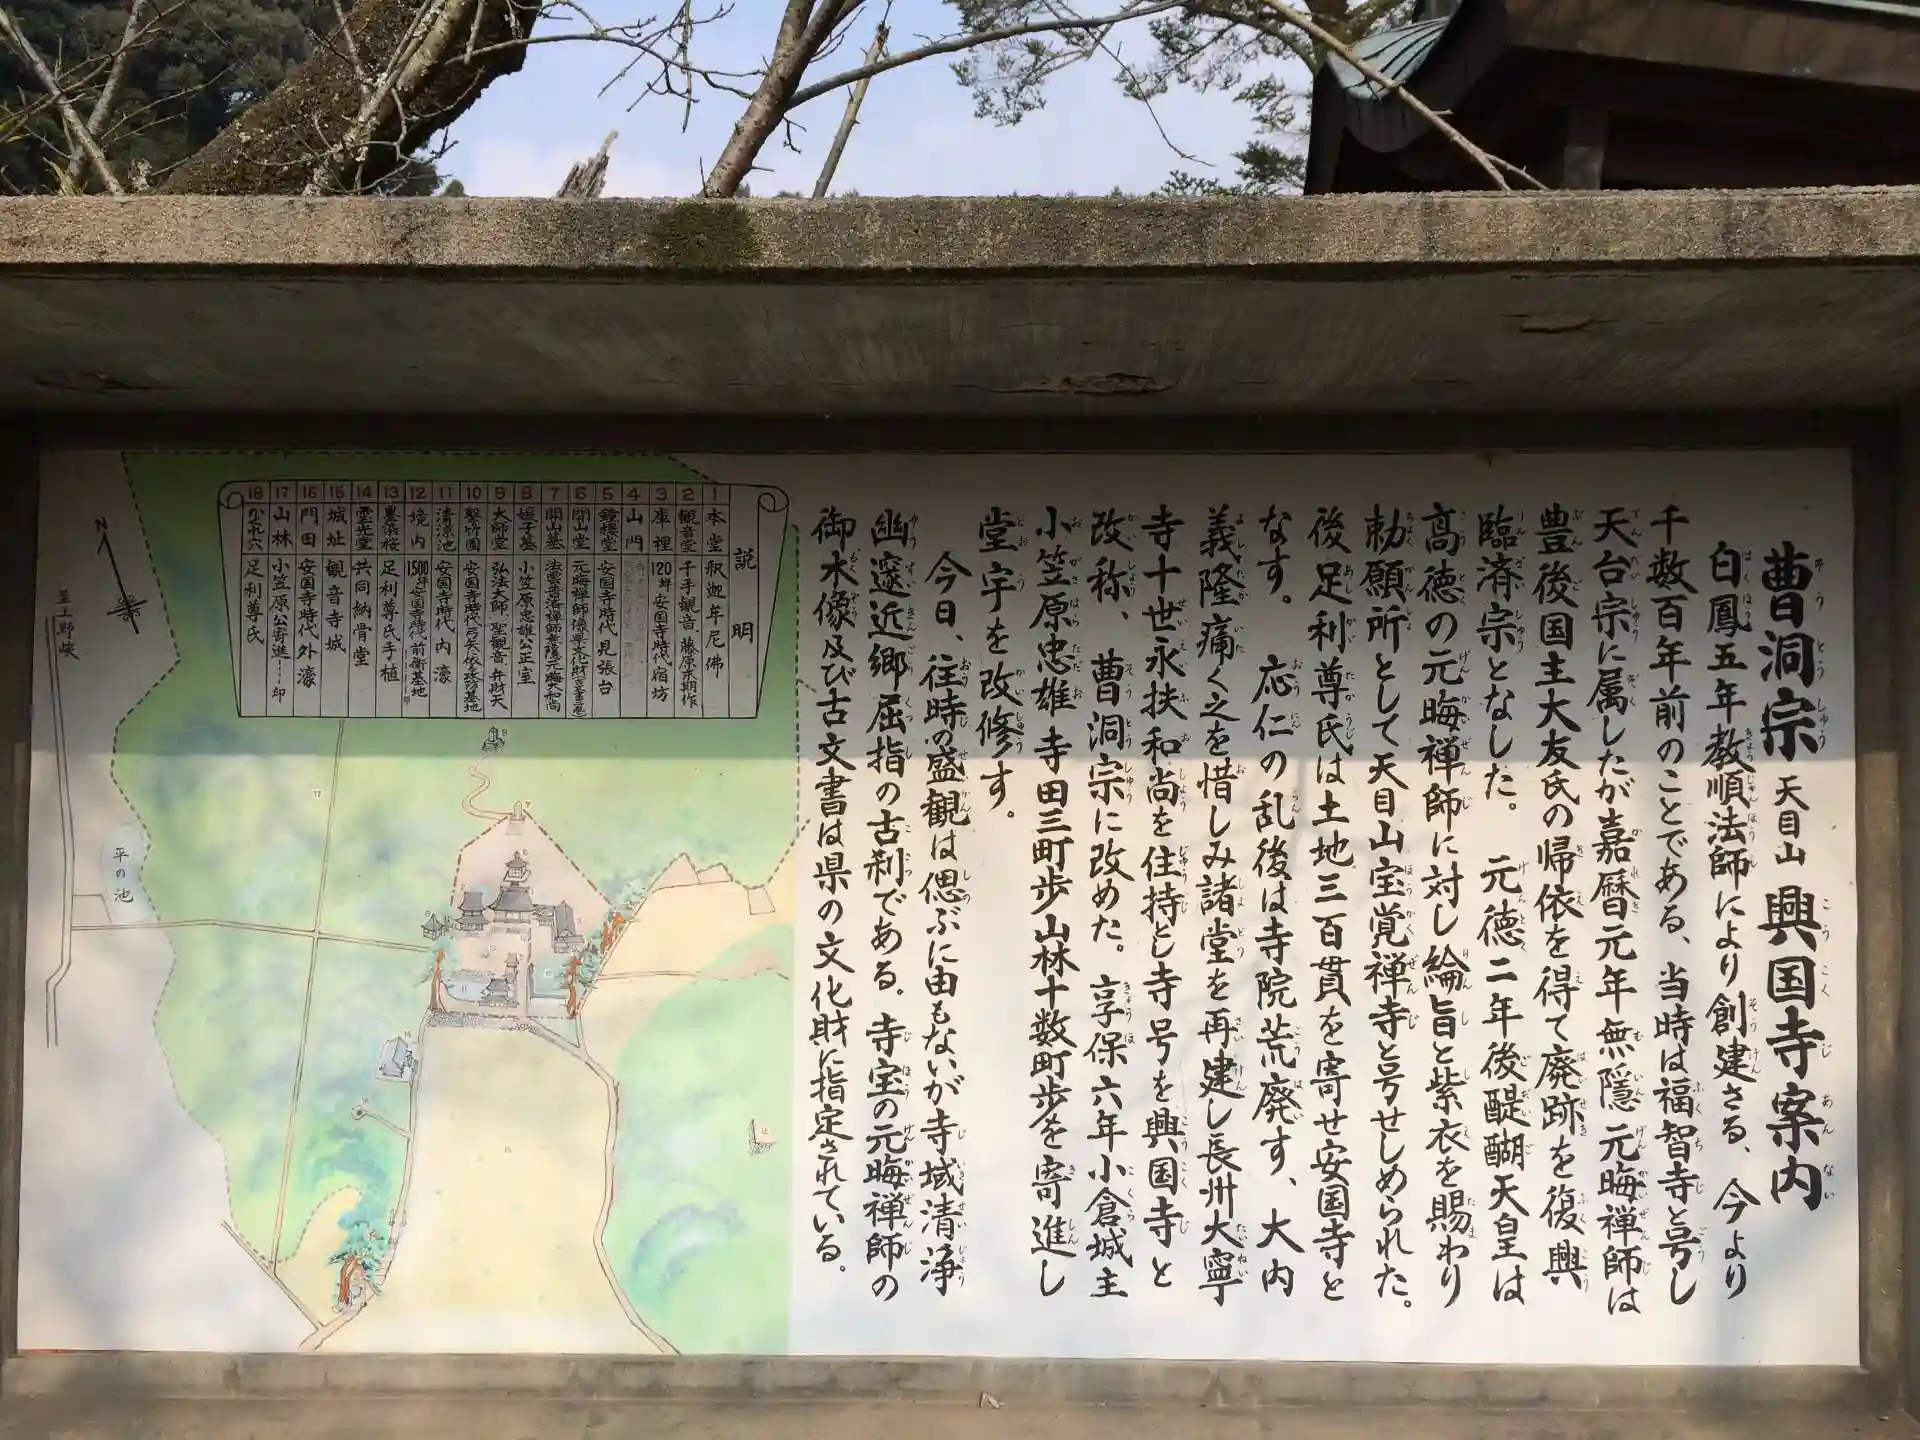 曹洞宗 天目山 興国寺案内
白鳳五年教順法師により創建さる、今より
千数百年前のことである、当時は福智寺と号し
天台宗に属したが嘉暦元年無隠元晦禅師は
豊後国主大友氏の帰依を得て廃跡を復興
臨済宗となした。 元徳二年後醍醐天皇は
高徳の元晦禅師に対し綸旨と紫衣を賜わり
勅願所として天目山宝覚禅寺と号せしめられた。
後足利尊氏は土地三百貫を寄せ安国寺と
なす。 応仁の乱後は寺院荒廃す、大内
義隆痛く之を惜しみ諸堂を再建し長州大寧
寺十世永扶和尚を住持とし寺号を興国寺と
改称、曹洞宗に改めた。享保六年小倉城主
小笠原忠雄寺田三町歩山林十数町歩を寄進し
堂宇を改修す。
今日、往時の盛観は偲ぶに由もないが寺域清浄
幽邃近郷屈指の古刹である。寺宝の元晦禅師の
御木像及び古文書は県の文化財に指定されている。
説明
1 本堂 釈迦牟尼佛
2 観音堂 千手観音、藤原末期作
3 庫裡 120坪 安国寺時代宿坊
4 山門
5 鐘楼堂 安国寺時代見張台
6 開山堂 元晦禅師像
7 開山墓
8 小笠原忠雄公正室
9 大師堂 弘法大師、聖観音、弁財天
10 安国寺時代弓矢
11 清涼池 安国寺時代 内濠
12 境内 1500坪 安国寺時代 前衛基地
13 墨染桜 足利尊氏手植
14 霊光堂 共同納骨堂
15 城址 観音寺城
16 門田 安国寺時代外濠
17 山林 小笠原公寄進
18 かくれ穴 足利尊氏
N
至上野峡
平の池